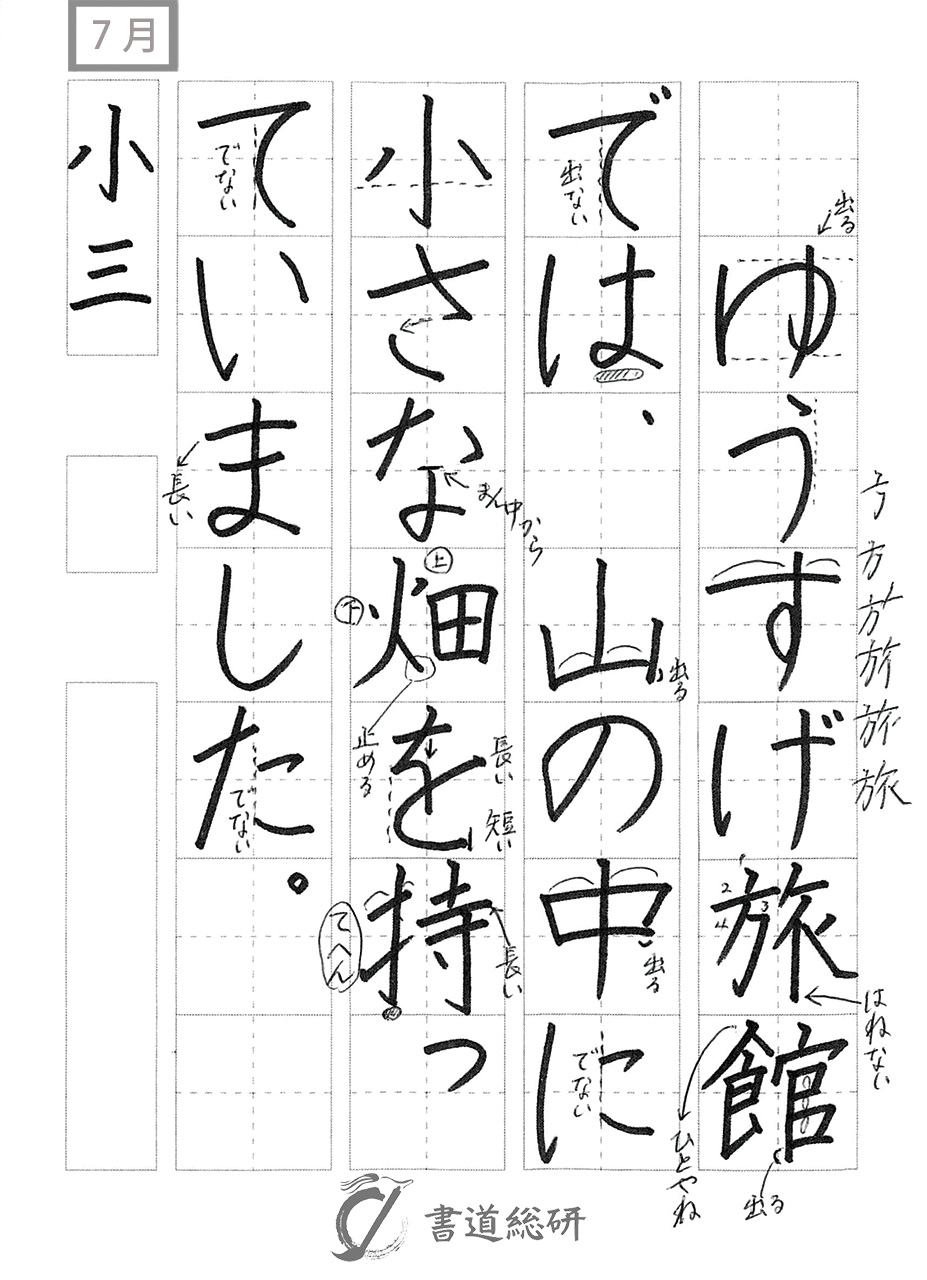 7月
ゆうすげ旅館
では、山の中に
小さな畑を持っ
ていました。
小三
出る
方
方
旅
旅
はねない
ひとやね
出る
出ない
出る
出る
でない
まん中から
上
下
止める
長い
短い
長い
てへん
でない
長い
でない
1
2
3
4
書道総研